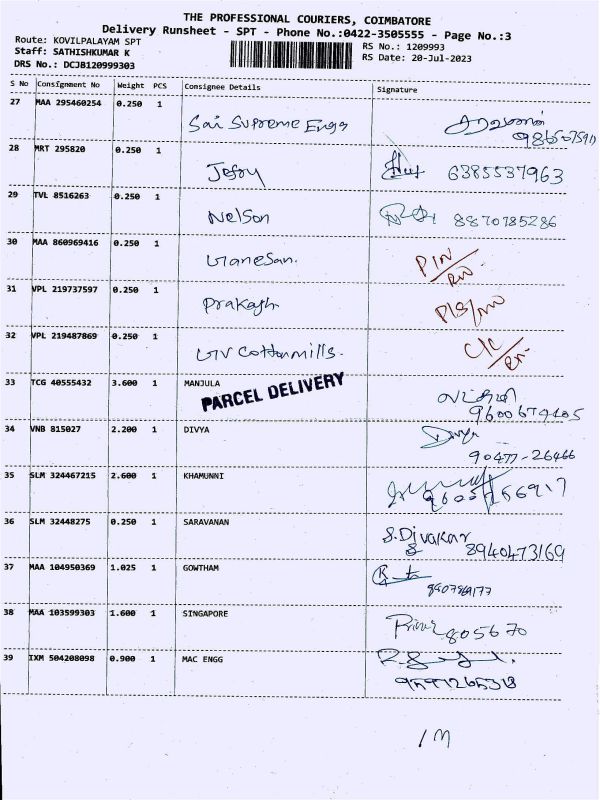 THE PROFESSIONAL COURIERS, COIMBATORE
Delivery Runsheet - SPT - Phone No.:0422-3505555 - Page No.:3
Route: KOVILPALAYAM SPT
RS No.: 1209993
Staff: SATHISHKUMAR K
RS Date: 20-Jul-2023
DRS No.: DCJB120999303
S No Consignment No Weight PCS Consignee Details Signature
27 MAA 295460254 0.250 1
Sai Supreme Engg
28 MRT 295820 0.250 1
Jefry 6385537963
29 TVL 8516263 0.250 1
Nelson 8870785286
30 MAA 860969416 0.250 1
Ganesan.
31 VPL 219737597 0.250 1
Prakash
32 VPL 219487869 0.250 1
GV Cottonmills.
33 TCG 40555432 3.600 1 MANJULA
PARCEL DELIVERY
34 VNB 815027 2.200 1 DIVYA Divya
90477-26466
35 SLM 324467215 2.600 1 KHAMUNNI
36 SLM 32448275 0.250 1 SARAVANAN
S.Divakar
8940473169
37 MAA 104950369 1.025 1 GOWTHAM
38 MAA 103599303 1.600 1 SINGAPORE
805670
39 IXM 504208098 0.900 1 MAC ENGG